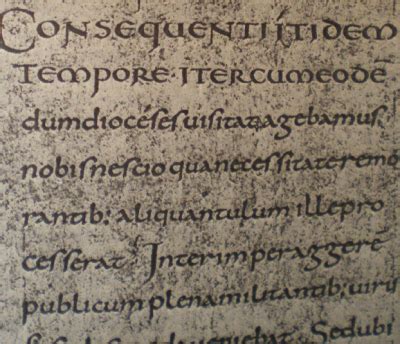 CONSEQUENTI ITIDEM
TEMPORE· ITERCUMEODĒ
dumdiocésesuisitatagebamus
nobisnescioquanecessitateremo
rantib; aliquantulum illepro
cesserat· Interimperaggerē
publicum plenamilitantib; uiris
ueniebat· Sedubi